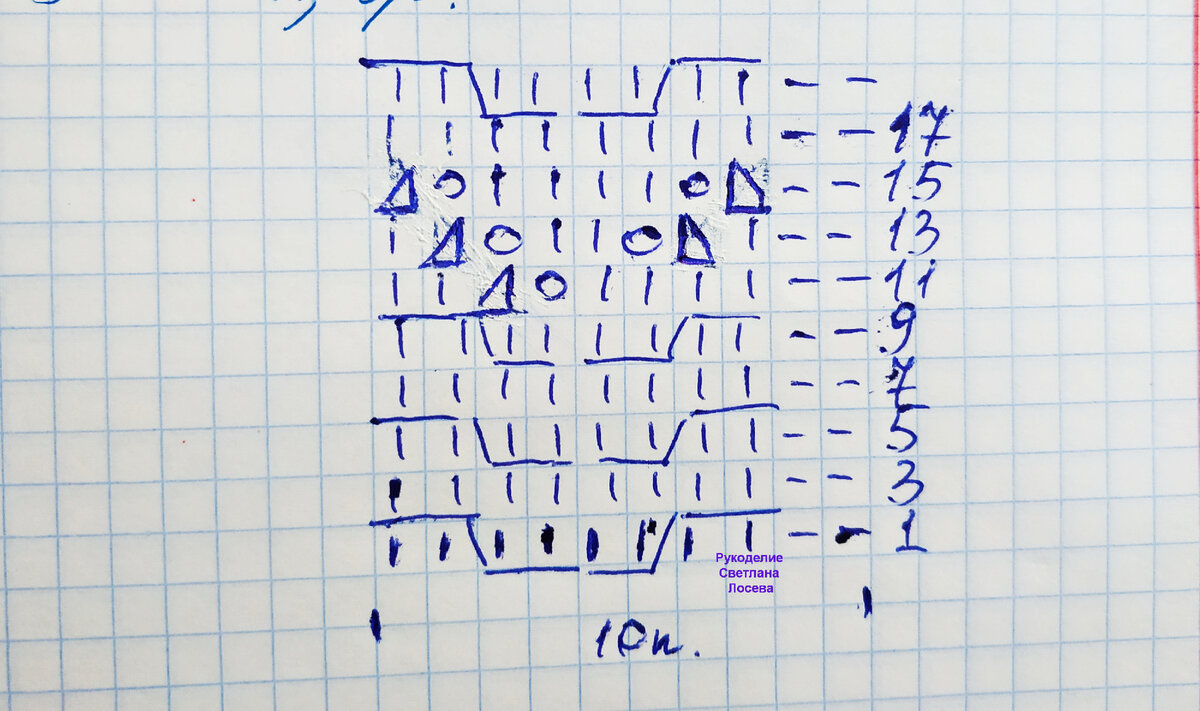 17
15
13
11
9
7
5
3
1
Рукоделие
Светлана
Лосева
10п.